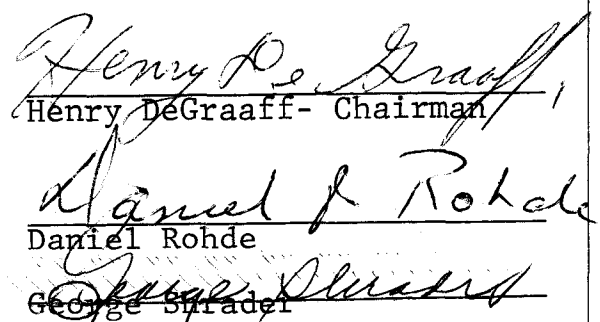 Henry De Graaff,
Henry DeGraaff- Chairman
Daniel J Rohde
Daniel Rohde
George Shrader
George Shrader